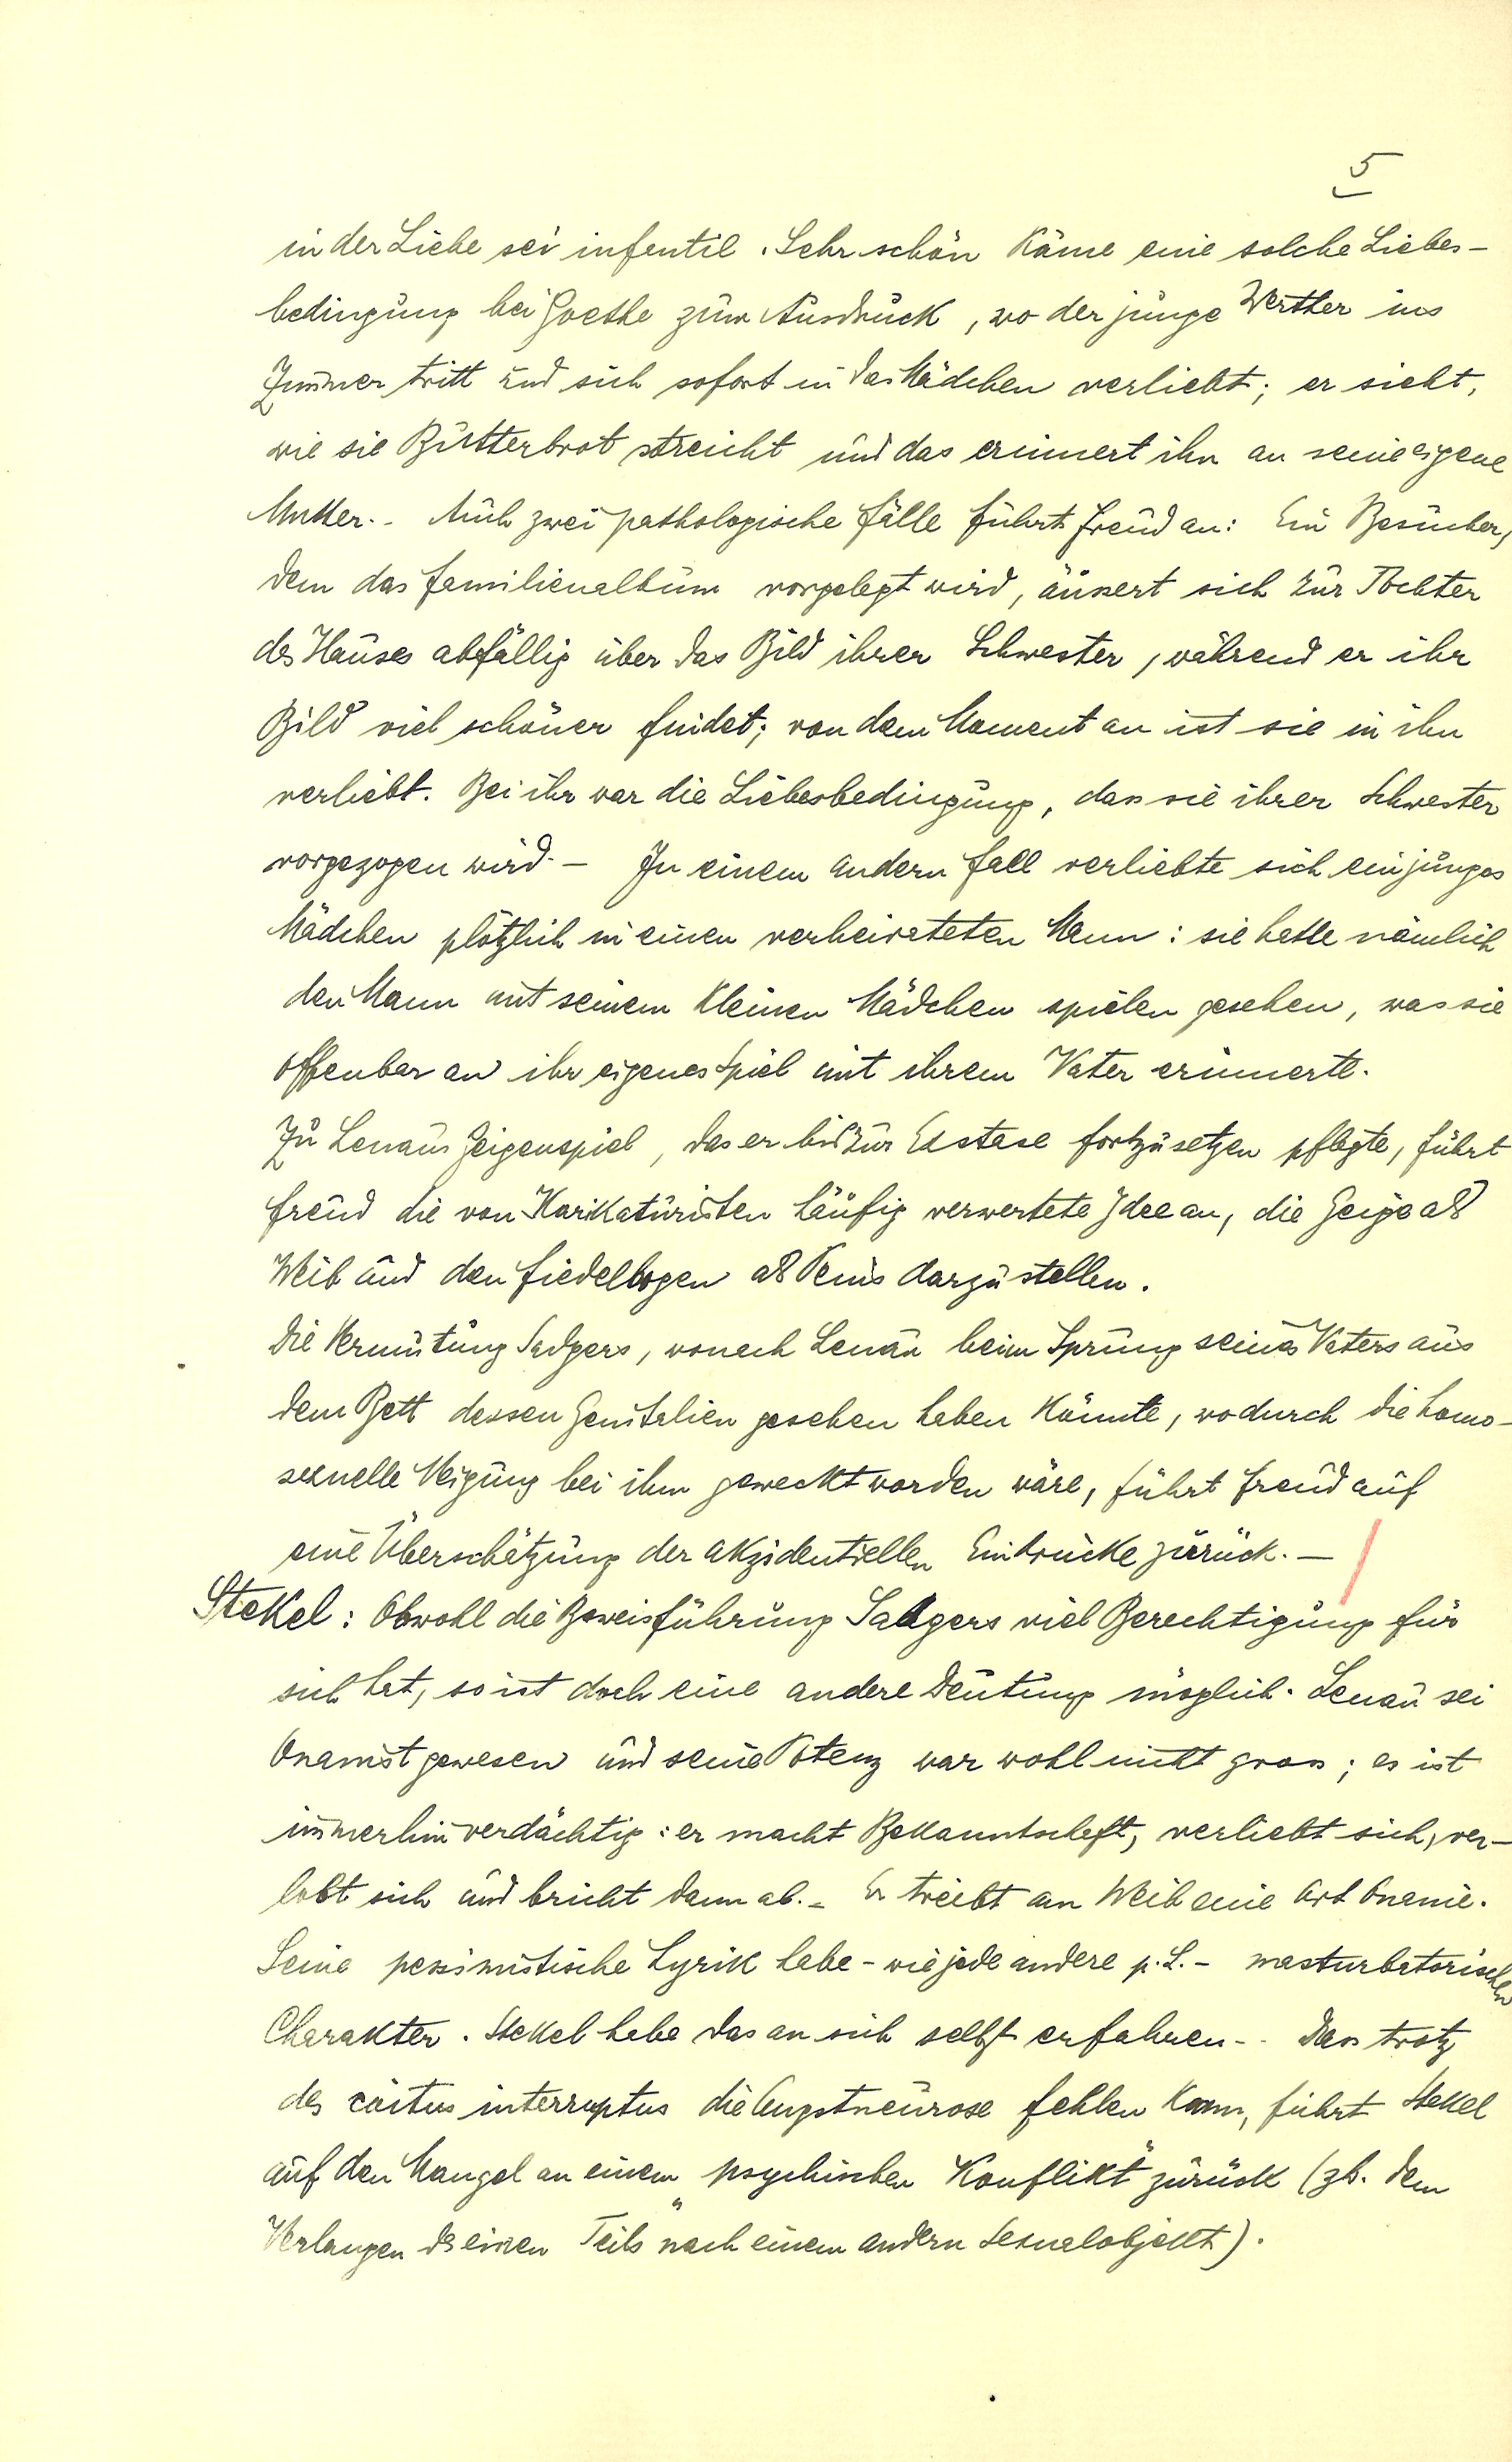 5
in der Liebe sei infantil. Sehr schön käme eine solche Liebes-
bedingung bei Goethe zum Ausdruck, wo der junge Werther ins
Zimmer tritt und sich sofort in das Mädchen verliebt; er sieht,
wie sie Butterbrot streicht und das erinnert ihn an seine eigene
Mutter. - Auch zwei pathologische Fälle führt Freud an: Ein Besucher,
dem das Familienalbum vorgelegt wird, äussert sich zur Tochter
des Hauses abfällig über das Bild ihrer Schwester, während er ihr
Bild viel schöner findet; von dem Moment an ist sie in ihn
verliebt. Bei ihr war die Liebesbedingung, dass sie ihrer Schwester
vorgezogen wird. - In einem andern Fall verliebte sich ein junges
Mädchen plötzlich in einen verheirateten Mann: sie hatte nämlich
den Mann mit seinem kleinen Mädchen spielen gesehen, was sie
offenbar an ihr eigenes Spiel mit ihrem Vater erinnerte.
Zu Lenaus Geigenspiel, das er bis zur Extase fortzusetzen pflegte, führt
Freud die von Karikaturisten häufig verwertete Idee an, die Geige als
Weib und den Fiedelbogen als Penis darzustellen.
Die Vermutung Sadgers, wonach Lenau beim Sprung seines Vaters aus
dem Bett dessen Genitalien gesehen haben könnte, wodurch die homo-
sexuelle Neigung bei ihm geweckt worden wäre, führt Freud auf
eine Überschätzung der akzidentiellen Eindrücke zurück. -
Stekel: Obwohl die Beweisführung Sadgers viel Berechtigung für
sich hat, so ist doch eine andere Deutung möglich. Lenau sei
Onanist gewesen und seine Potenz war wohl nicht gross; es ist
immerhin verdächtig: er macht Bekanntschaft, verliebt sich, ver-
lobt sich und bricht dann ab. - Er treibt am Weib eine Art Onanie.
Seine pessimistische Lyrik habe - wie jede andere p. L. - masturbatorischen
Charakter. Stekel habe das an sich selbst erfahren. - Dass trotz
des coitus interruptus die Angstneurose fehlen kann, führt Stekel
auf den Mangel an einem „psychischen Konflikt" zurück (zb. dem
Verlangen des einen Teils nach einem andern Sexualobjekt).